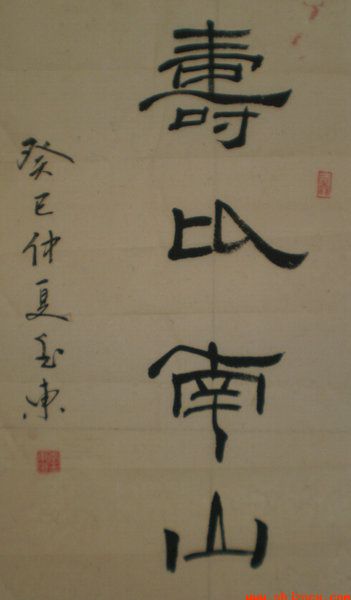 壽比南山
癸巳仲夏